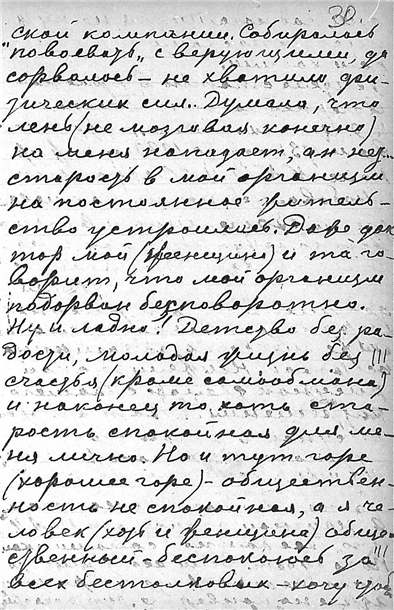 30
ской компании. Собиралось
"повоевать„ с верующими, да
сорвалось – не хватило фи-
зических сил. Думала, что
лень (не мозговая конечно)
на меня нападает, ан нет...
старость в мой организм
на постоянное житель-
ство устроилась. Даже док
тор мой (женщина) и та го-
ворит, что мой организм
подорван бесповоротно.
Ну и ладно! Детство без ра-
дости, молодая жизнь без !!!
счастья (кроме самообмана)
и наконец то хоть ста-
рость спокойная для ме-
ня лично. Но и тут горе
(хорошее горе) – обществен-
ность не спокойная, а я че-
ловек (хоть и женщина) обще
ственный – беспокоюсь за !!!
всех бестолковых – хочу чтоб